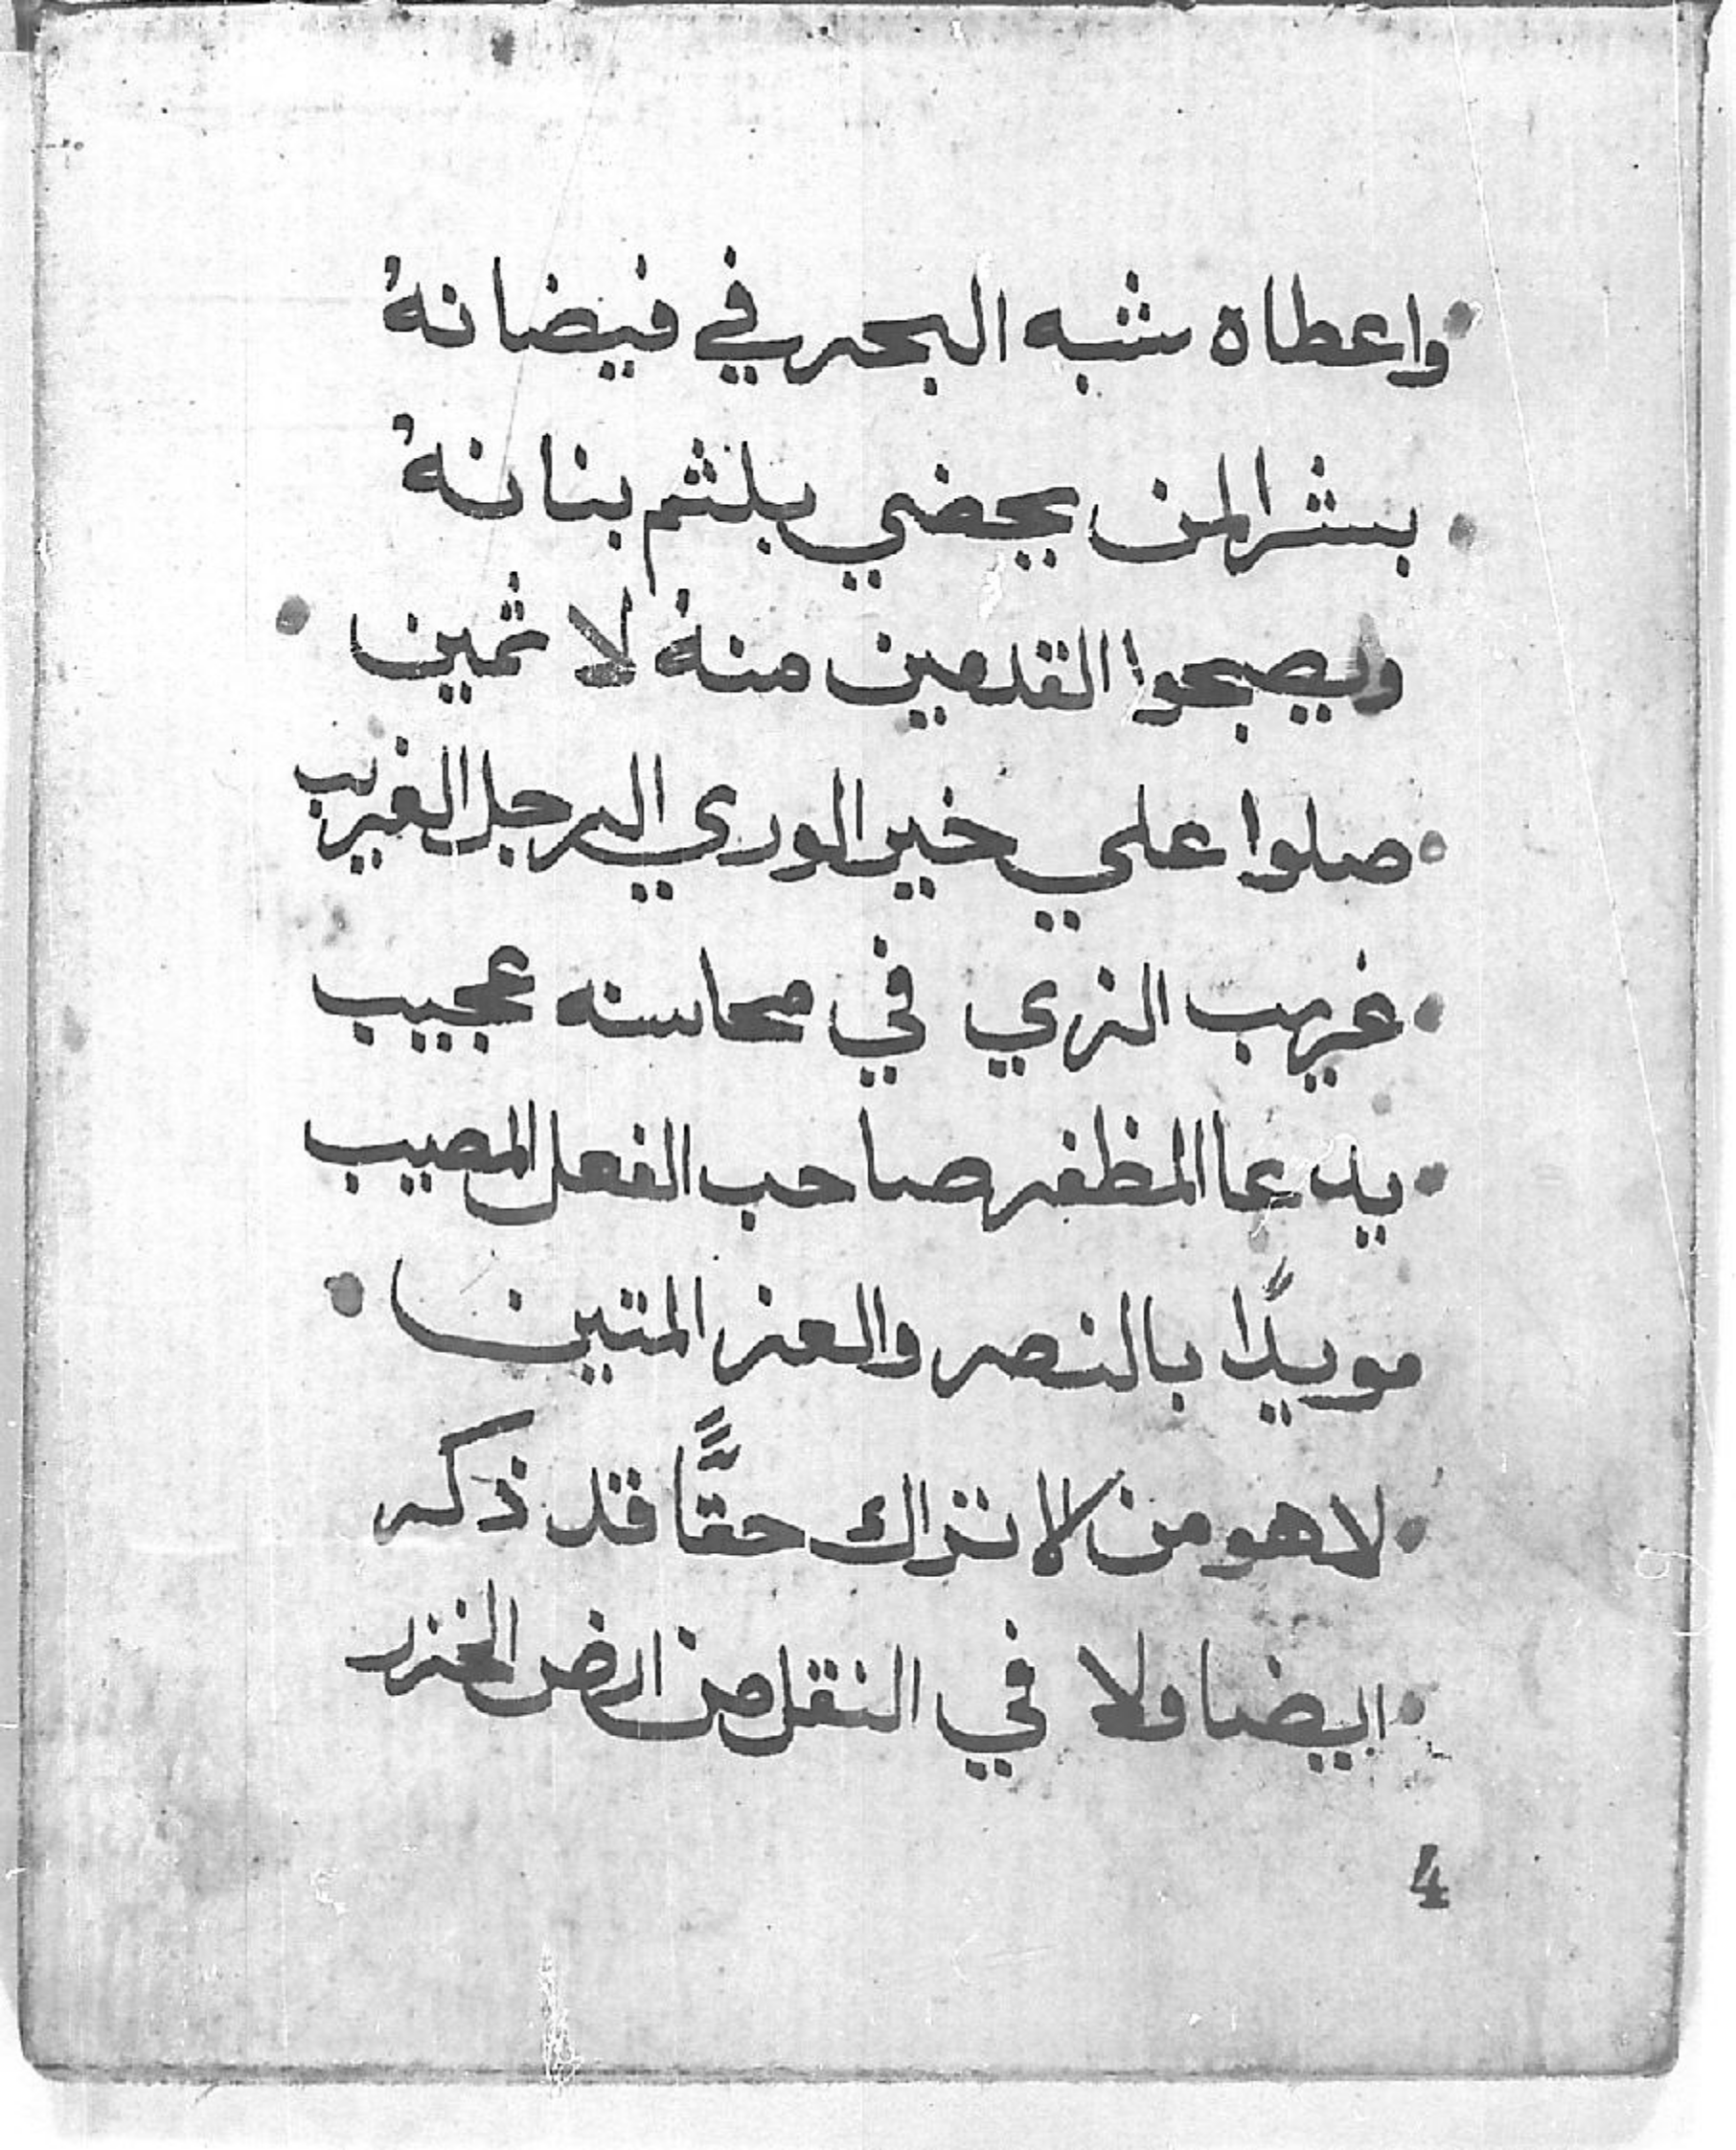 واعطاه شبه البحر في فيضانهُ
بشرا لمن يحضي بلثم بنانهُ
ويصبحوا القدمين منهُ لاثمين
صلوا علي خير الوري الرجل الغريب
غريب الزي في محاسنه عجيب
يدعا المظفر صاحب الفعل المصيب
مويدًا بالنصر والعز المتين
لا هو من لا تراك حقًّا قد ذكر
ايضا ولا في النقل من ارض الخزر
4